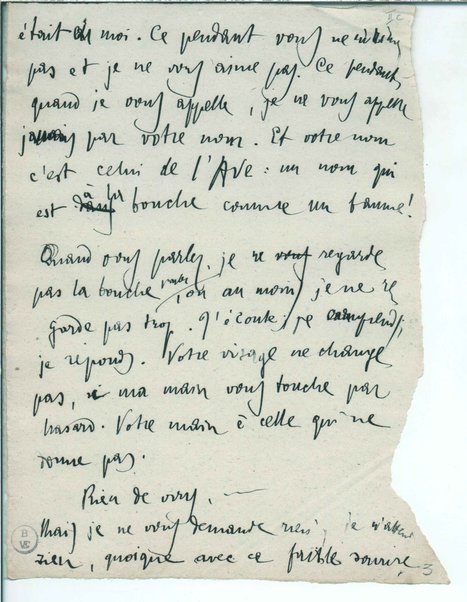 était en moi. Ce pendant vous ne m'aimez
pas et je ne vous aime pas. Ce pendant,
quand je vous appelle, je ne vous appelle
jamais par votre nom. Et votre nom
c'est celui de l'Ave : un nom qui
est à la bouche comme un baume!
Quand vous parlez, je ne vous regarde
pas la bouche, ou au moins je ne re
garde pas trop. J'écoute; je comprends;
je réponds. Votre visage ne change
pas, si ma main vous touche par
hasard. Votre main è celle qui ne
donne pas.
Rien de vous, —
Mais je ne vous demande rien, je n'attends
rien, quoique avec ce faible sourire,
3